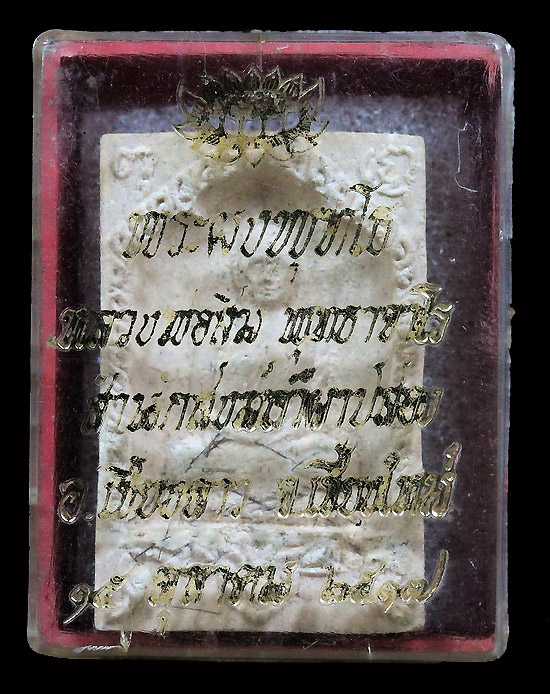 พระผงพุทโธ
หลวงพ่อสิม พุทธาจาโร
สำนักสงฆ์ถ้ำผาปล่อง
อ.เชียงดาว จ.เชียงใหม่
๑๕ ตุลาคม ๒๕๑๗